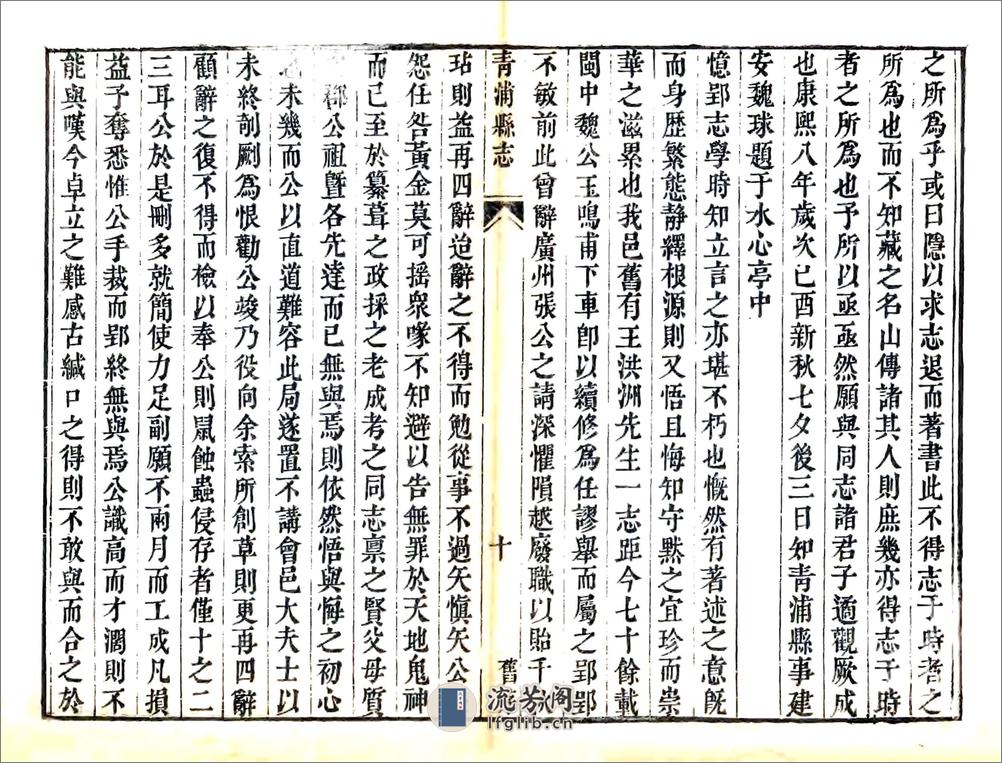 之所爲乎或曰隱以求志退而著書此不得志于時者之
所爲也而不知藏之名山傳諸其人則庶幾亦得志于時
者之所爲也予所以亟亟然願與同志諸君子適觀厥成
也康熙八年歲次己酉新秋七夕後三日知青浦縣事建
安魏球題于水心亭中
憶郢志學時知立言之亦堪不朽也慨然有著述之意旣
而身歷繁態靜繹根源則又悟且悔知守默之宜珍而崇
華之滋累也我邑舊有王洪洲先生一志距今七十餘載
閩中魏公玉鳴甫下車卽以續修爲任謬舉而屬之郢郢
不敏前此曾辭廣州張公之請深懼隕越廢職以貽千
青浦縣志
十
舊
玷則益再四辭迨辭之不得而勉從事不過矢愼矢公
怨任咎黃金莫可搖衆喙不知避以告無罪於天地鬼神
而已至於纂葺之政採之老成考之同志禀之賢父母質
郡公祖曁各先達而已無與焉則依然悟與悔之初心
未幾而公以直道難容此局遂置不講會邑大夫士以
未終剞劂爲恨勸公竣乃役向余索所創草則更再四辭
顧辭之復不得而檢以奉公則鼠蝕蟲侵存者僅十之二
三耳公於是刪多就簡使力足副願不兩月而工成凡損
益予奪悉惟公手裁而郢終無與焉公識高而才濶則不
能與嘆今卓立之難感古緘口之得則不敢與而合之於
流芳阁
lfglib.cn